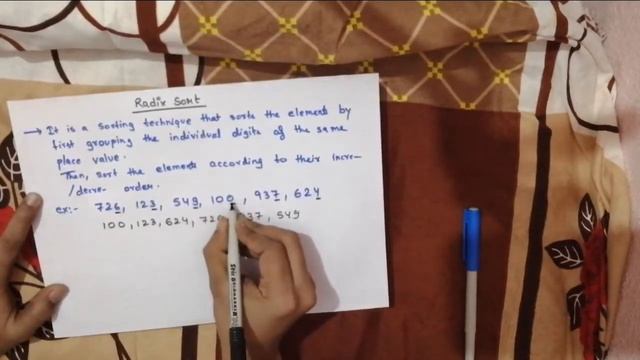 Radix Sort
→ It is a sorting technique that sorts the elements by
first grouping the individual digits of the same
place value.
Then, sort the elements according to their Incre-
/decre- order.
ex:- 726, 123, 549, 100, 937, 624
100, 123, 624, 726, 937, 549